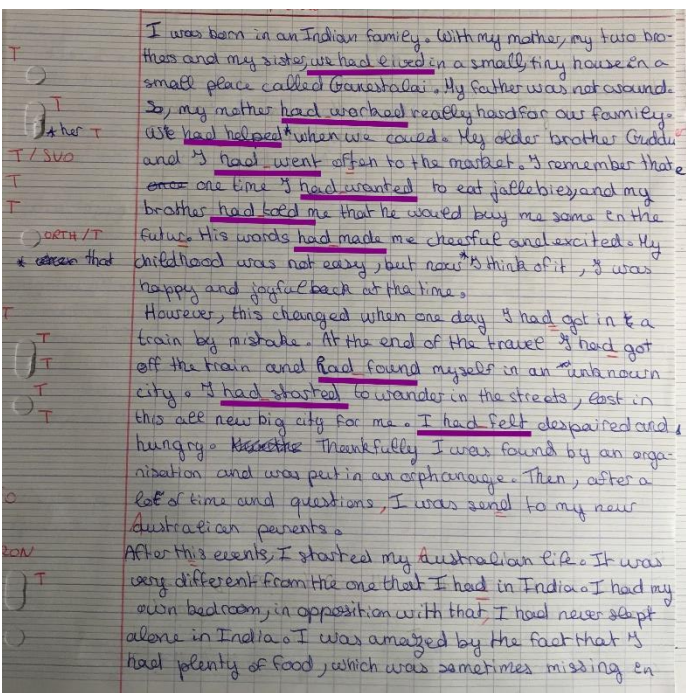 I was born in an Indian family. With my mother, my two bro-
T thers and my sister, we had lived in a small, tiny house in a
small place called Ganestalai. My father was not around.
T So, my mother had worked really hard for our family.
* her T We had helped * when we could. My older brother Guddu
T / SVO and I had went often to the market. I remember that
T one time I had wanted to eat jallebies, and my
T brother had told me that he would buy me some in the
ORTH / T futur. His words had made me cheerful and excited. My
* that childhood was not easy, but now * I think of it, I was
happy and joyful back at tha time.
T However, this changed when one day I had got in a
T train by mistake. At the end of the travel I had got
T off the train and had found myself in an unknown
T city. I had started to wander in the streets, lost in
T this all new big city for me. I had felt despaired and
hungry. Thankfully I was found by an orga-
nisation and was put in an orphanage. Then, after a
O lot of time and questions, I was send to my new
Australian parents.
RON After this events, I started my Australian life. It was
T very different from the one that I had in India. I had my
own bedroom, in opposition with that, I had never slept
alone in India. I was amazed by the fact that I
had plenty of food, which was sometimes missing in